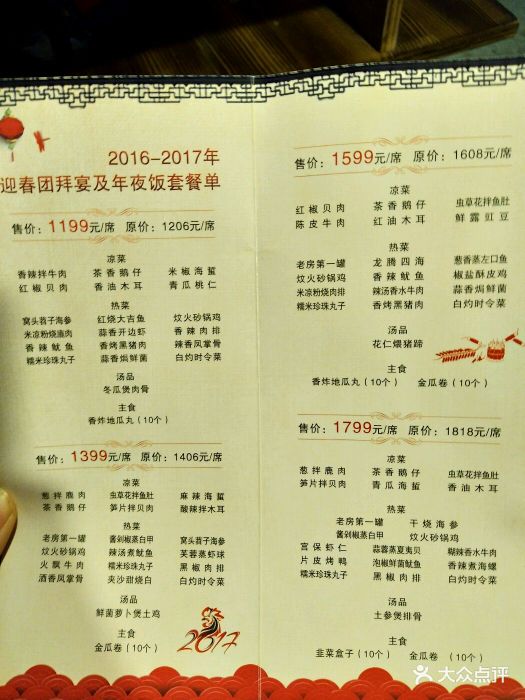 2016-2017年
迎春团拜宴及年夜饭套餐单
售价：1199元/席 原价：1206元/席
凉菜
香辣拌牛肉 茶香鹅仔 米椒海蜇
红椒贝肉 香油木耳 青瓜桃仁
热菜
窝头荀子海参 红烧大吉鱼 炆火砂锅鸡
米凉粉烧血肉 蒜香开边虾 香辣肉排
香辣鱿鱼 香烤黑猪肉 辣香凤掌骨
糯米珍珠丸子 蒜香焗鲜菌 白灼时令菜
汤品
冬瓜煲肉骨
主食
香炸地瓜丸（10个）
售价：1399元/席 原价：1406元/席
凉菜
葱拌鹿肉 虫草花拌鱼肚 麻辣海蜇
茶香鹅仔 笋片拌贝肉 酸辣拌木耳
热菜
老房第一罐 酱剁椒蒸白甲 窝头荀子海参
炆火砂锅鸡 辣汤煮鱿鱼 芙蓉蒸虾球
火飘牛肉 糯米珍珠丸子 黑椒肉排
酒香凤掌骨 夹沙甜烧白 白灼时令菜
汤品
鲜菌萝卜煲土鸡
主食
金瓜卷（10个）
2017
售价：1599元/席 原价：1608元/席
凉菜
红椒贝肉 茶香鹅仔 虫草花拌鱼肚
陈皮牛肉 红油木耳 鲜露豇豆
热菜
老房第一罐 龙腾四海 葱香蒸左口鱼
炆火砂锅鸡 香辣鱿鱼 椒盐酥皮鸡
米凉粉烧肉排 辣汤香水牛肉 蒜香焗鲜菌
糯米珍珠丸子 香烤黑猪肉 白灼时令菜
汤品
花仁煨猪蹄
主食
香炸地瓜丸（10个） 金瓜卷（10个）
售价：1799元/席 原价：1818元/席
凉菜
葱拌鹿肉 茶香鹅仔 虫草花拌鱼肚
笋片拌贝肉 青瓜海蜇 香油木耳
热菜
老房第一罐 干烧海参
酱剁椒蒸白甲 炆火砂锅鸡
宫保虾仁 蒜蓉蒸夏夷贝 糊辣香水牛肉
片皮烤鸭 泡椒鲜菌鱿鱼 香辣煮海螺
糯米珍珠丸子 黑椒肉排 白灼时令菜
汤品
土参煲排骨
主食
韭菜盒子（10个） 金瓜卷（10个）
大众点评